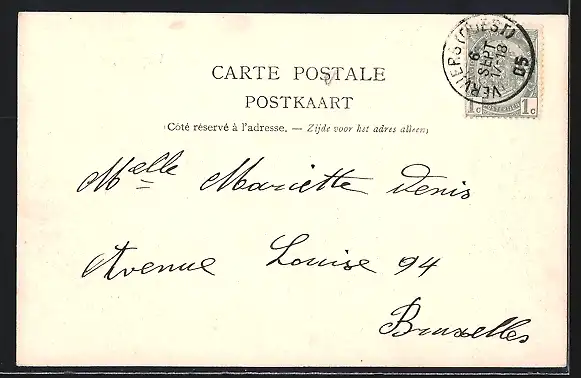 VERVIERS (OUEST)
6
SEPT
17-18
05
1c 1c
CARTE POSTALE
POSTKAART
(Côté réservé à l'adresse. — Zijde voor het adres alleen)
Melle Mariette Denis
Avenue Louise 94
Bruxelles